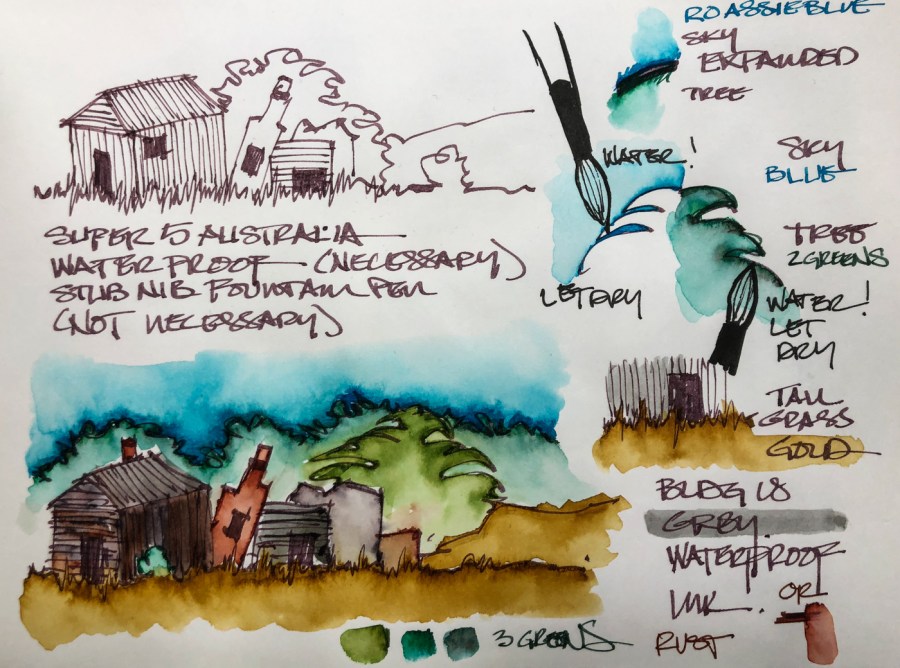 RO ASSIE BLUE
SKY
EXPANDED
TREE
WATER!
SKY
BLUE
LET DRY
TREE
2 GREENS
WATER!
LET
DRY
SUPER 5 AUSTRALIA
WATERPROOF (NECESSARY)
STUB NIB FOUNTAIN PEN
(NOT NECESSARY)
TALL
GRASS
GOLD
BLDG IS
GRAY
WATERPROOF
INK. OR
RUST
3 GREENS